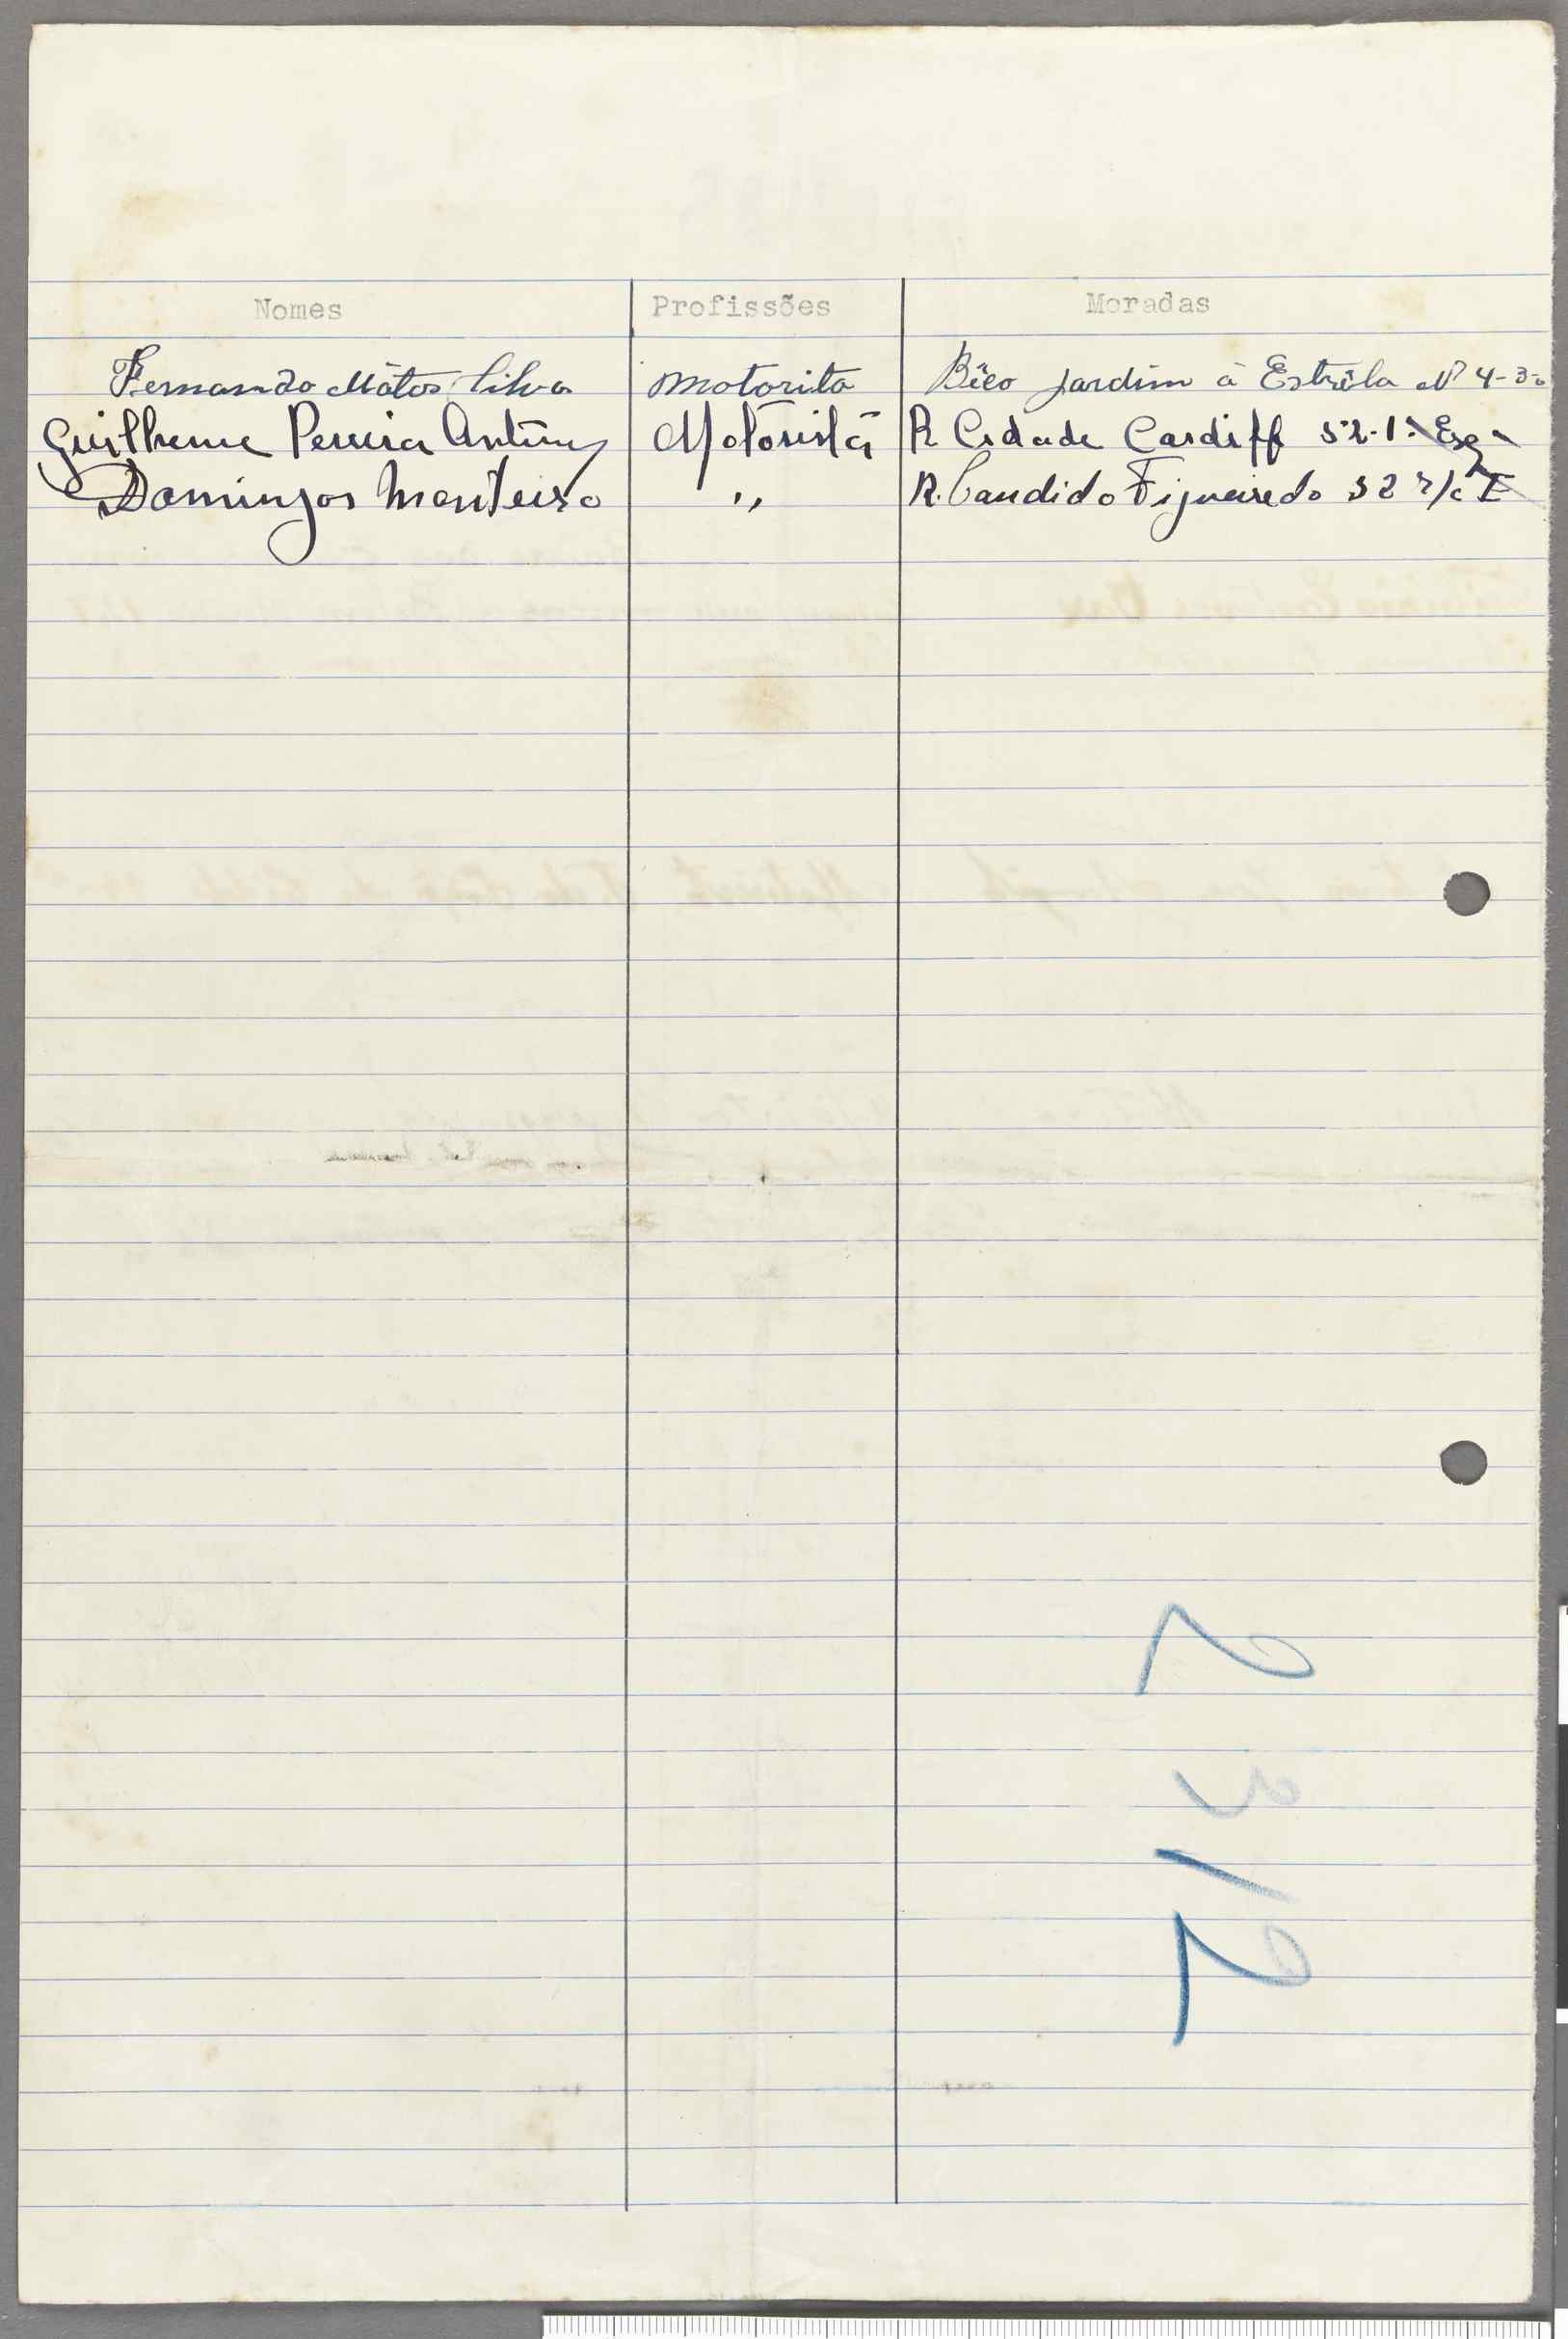 Nomes Profissões Moradas
Fernando Mátos Silva motorita Bêco Jardim á Estrêla Nº 4-3º
Guilherme Pereira Antunes Motorista R Cidade Cardiff 52-1º Esq
Domingos Monteiro ,, R. Candido Figueiredo 52 r/c E
2312